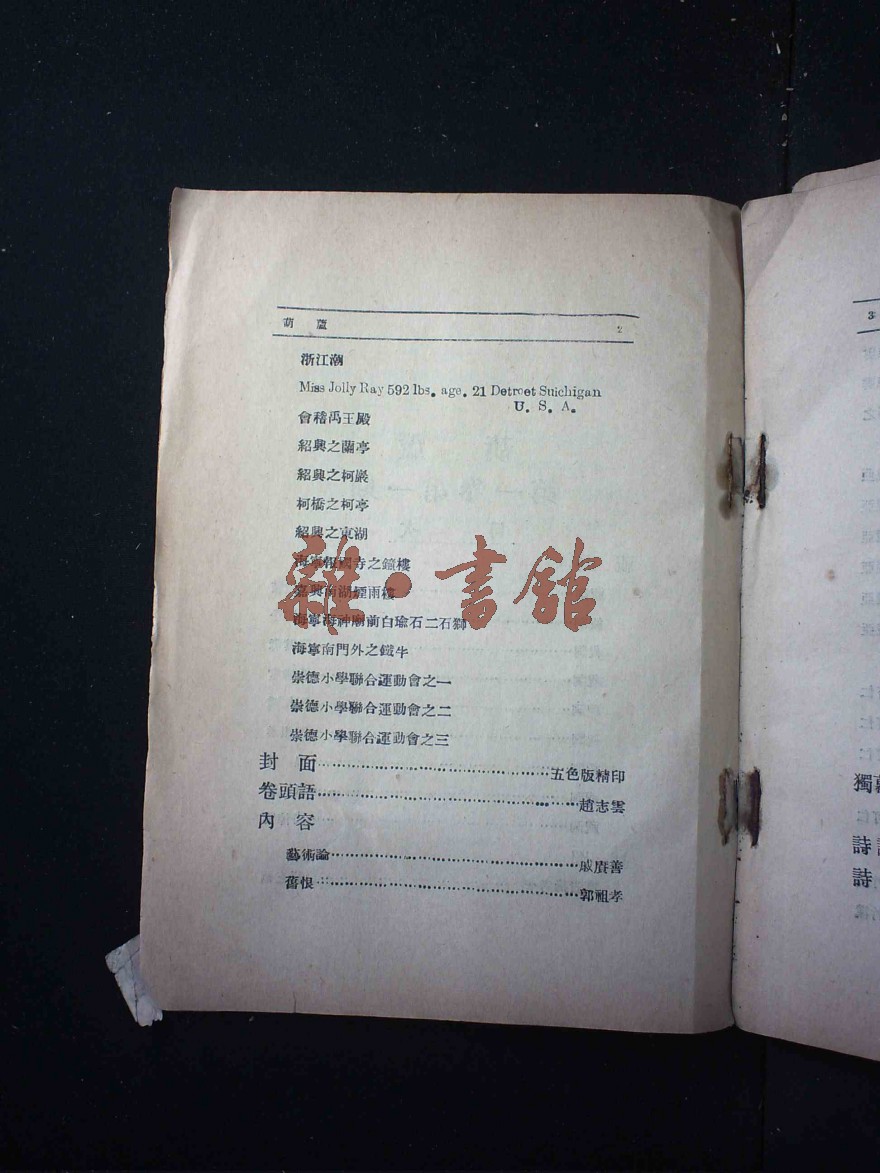 葫蘆 2
浙江潮
Miss Jolly Ray 592 lbs. age. 21 Detroet Suichigan
U. S. A.
會稽禹王殿
紹興之蘭亭
紹興之柯巖
柯橋之柯亭
紹興之東湖
海寧報國寺之鐘樓
嘉興南湖煙雨樓
海寧海神廟前白瑜石二石獅
海寧南門外之鐵牛
崇德小學聯合運動會之一
崇德小學聯合運動會之二
崇德小學聯合運動會之三
封面……五色版精印
卷頭語……趙志雲
內容
藝術論……戚賡善
舊恨……郭祖孝
雜·書館
3
獨
詩
詩